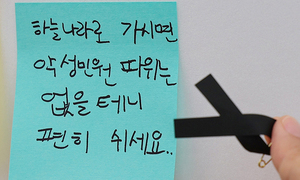 하늘나라로 가시면
악성민원 따위는
없을 테니
편히 쉬세요..